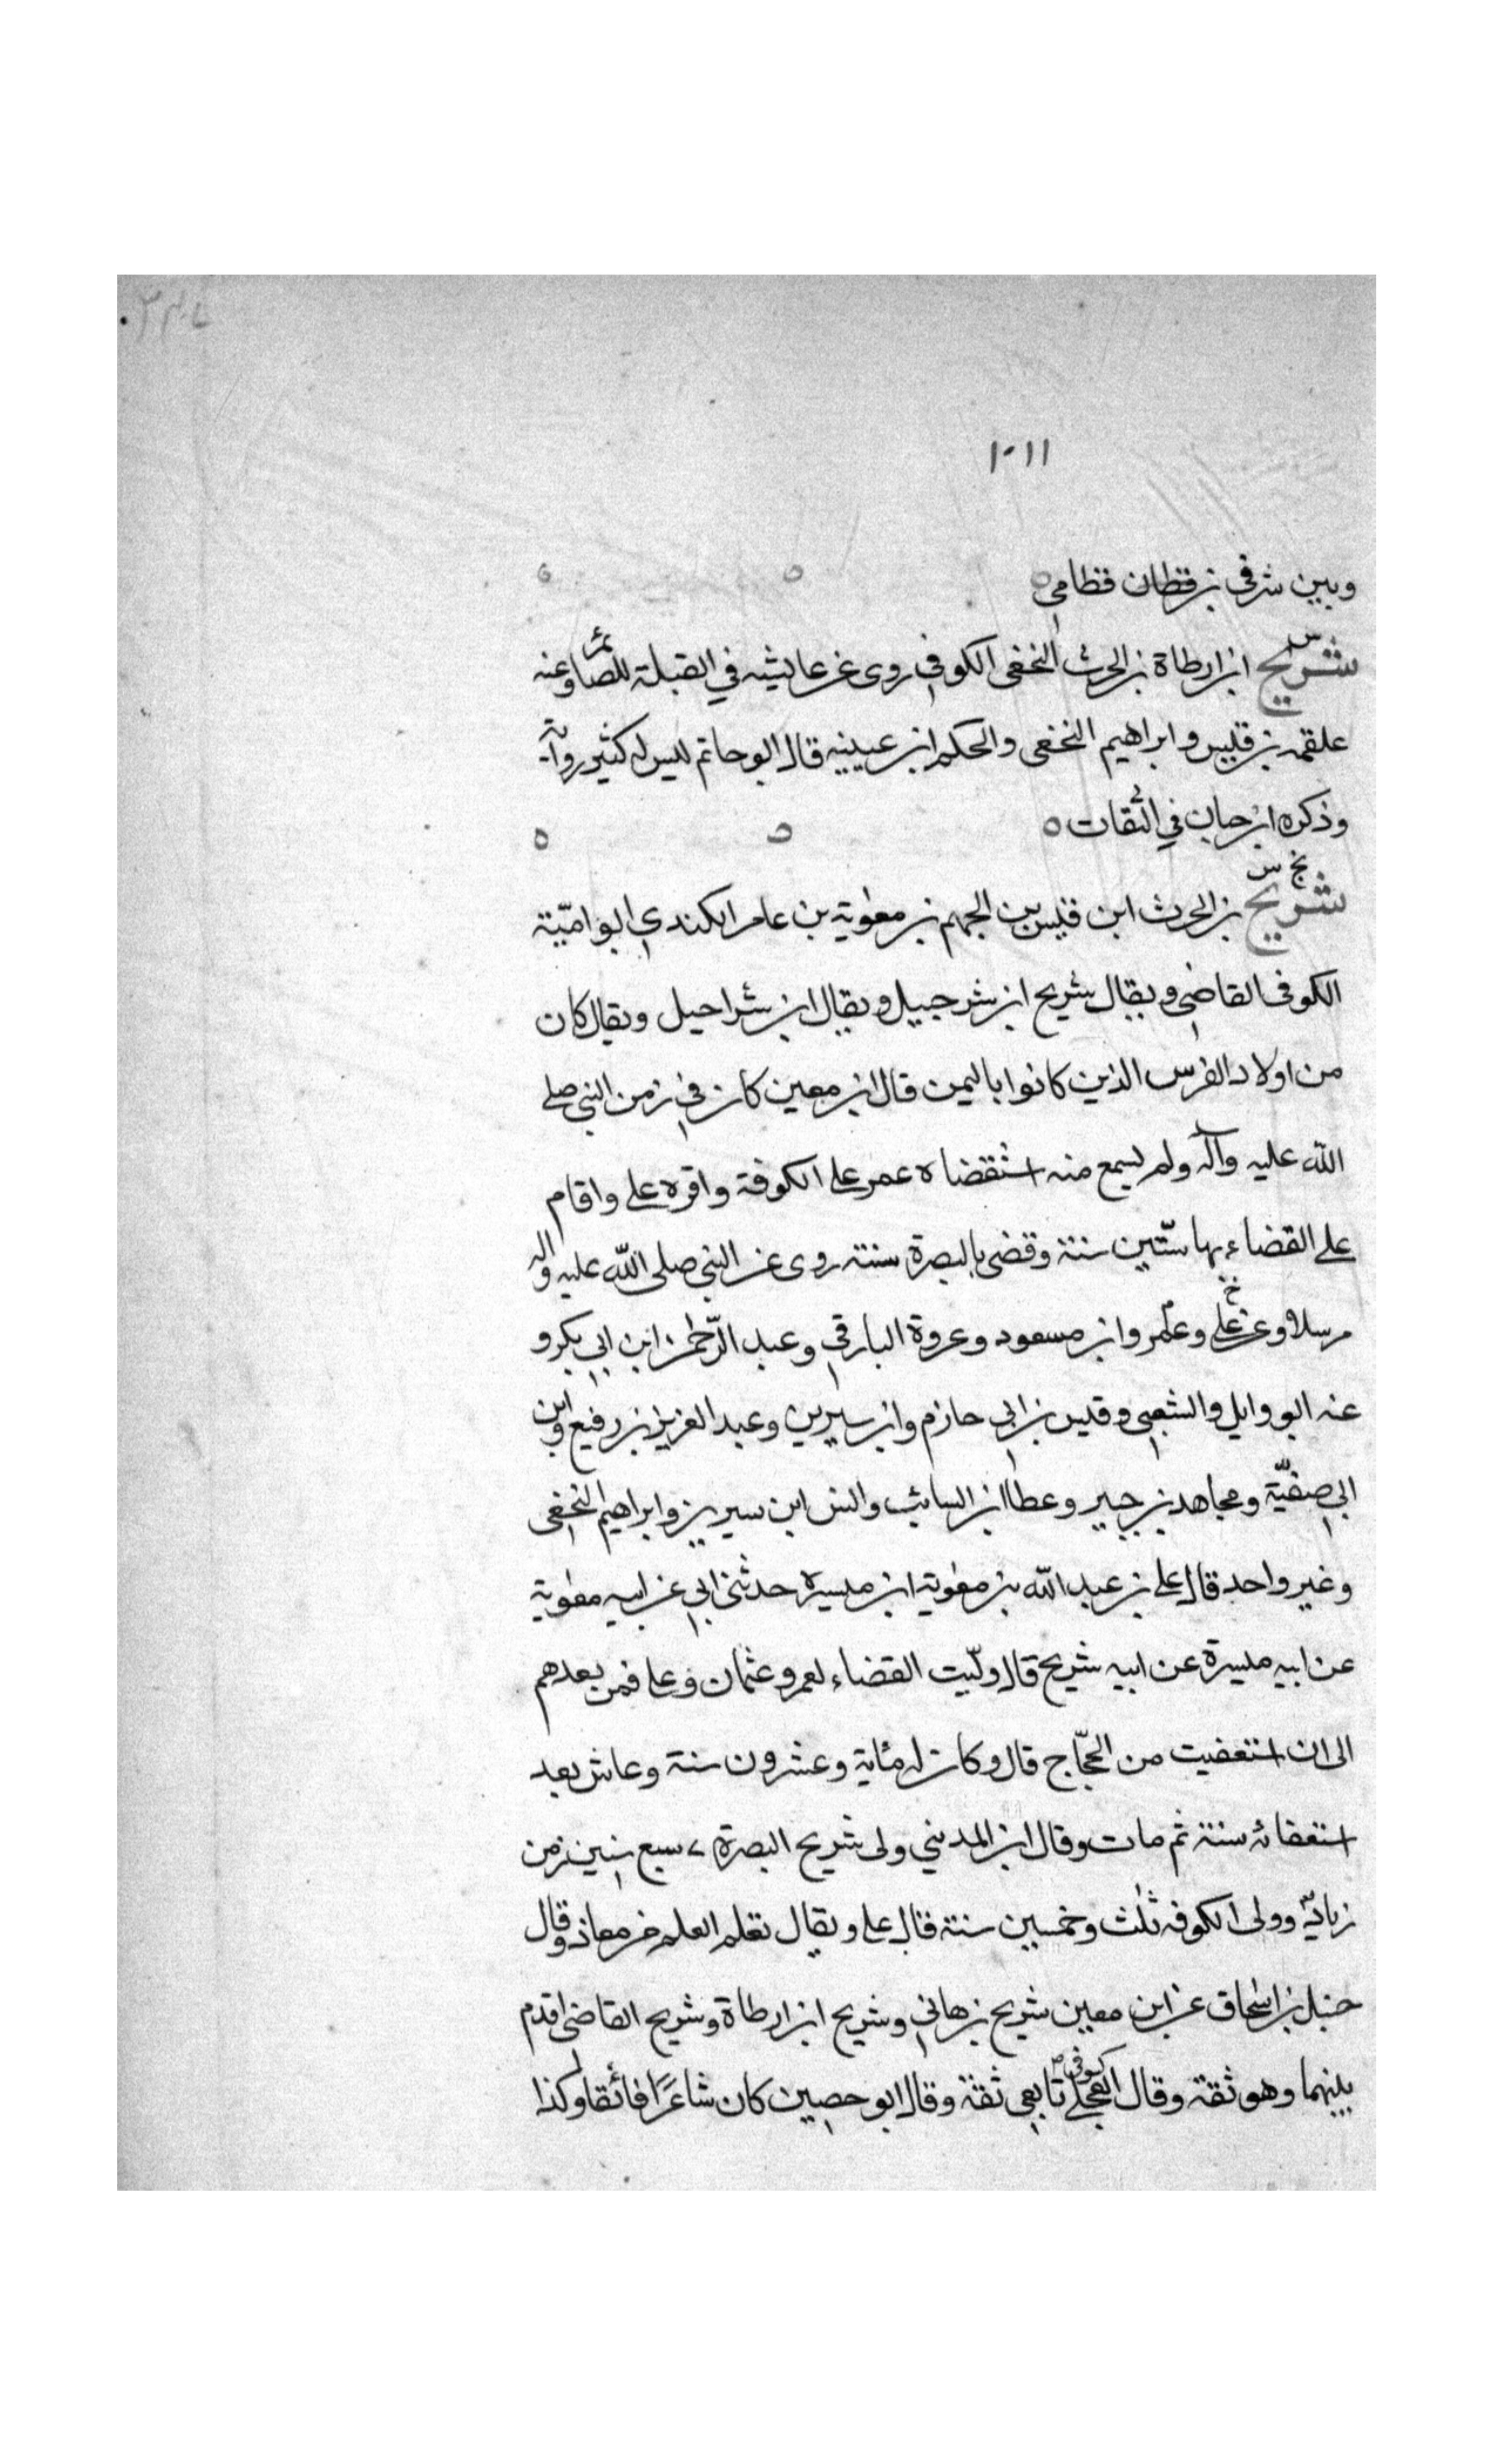 ١٠١١
وبين شرقي بن قطان قظامي
س
شريح ابن ارطاة بن الحرث النخعي الكوفي روى عن عايشه في القبلة للصائم وعنه
علقمه بن قليس وابراهيم النخعي والحكم ابن عيينيه قال ابو حاتم ليس له كثير رواية
وذكره ابن حبان في الثقات
بخ س
شريح بن الحرث ابن قليس بن الجهم بن معوية بن عامر الكندي ابو اميّة
الكوفي القاضي ويقال شريح ابن شرجبيل ويقال ابن شراحيل ويقال كان
من اولاد الفرس الذين كانوا باليمن قال ابن معين كان في زمن النبي صلى
الله عليه وآله ولم يسمع منه استقضاه عمر على الكوفة واقره على واقام
على القضاء بها ستّين سنة وقضى بالبصرة سنته روى عن النبي صلى الله عليه واله
مرسلا وعن علي وعمر وابن مسعود وعروة البارقي وعبد الرّحمن ابن ابي بكر و
عنه ابو وايل والشعبي وقليس بن ابي حازم وابن سيرين وعبد العزيز بن رفيع وابن
ابي صفيّة ومجاهد بن جبير وعطا ابن السائب وانس ابن سيرين وابراهيم النخعي
وغير واحد قال على بن عبد الله بن معوية ابن مليسره حدثني ابي عن ابيه معوية
عن ابيه مليسرة عن ابيه شريح قال وليّت القضاء لعمر وعثمان وعلى فمن بعدهم
الى ان استعفيت من الحجّاج قال وكان له مئاية وعشرون سنة وعاش بعد
استعفائه سنة ثم مات وقال ابن المديني ولى شريح البصرة ٧ سبع سنين زمن
زياد وولى الكوفه ثلث وخمسين سنة قال على ويقال تعلم العلم من معاذ وقال
حنبل بن اسحاق عن ابن معين شريح بن هاني وشريح ابن ارطاة وشريح القاضي اقدم
بينهما وهو ثقة وقال العجلي كوفي تابعي ثقة وقال ابو حصين كان شاعرًا فائقا وكذا